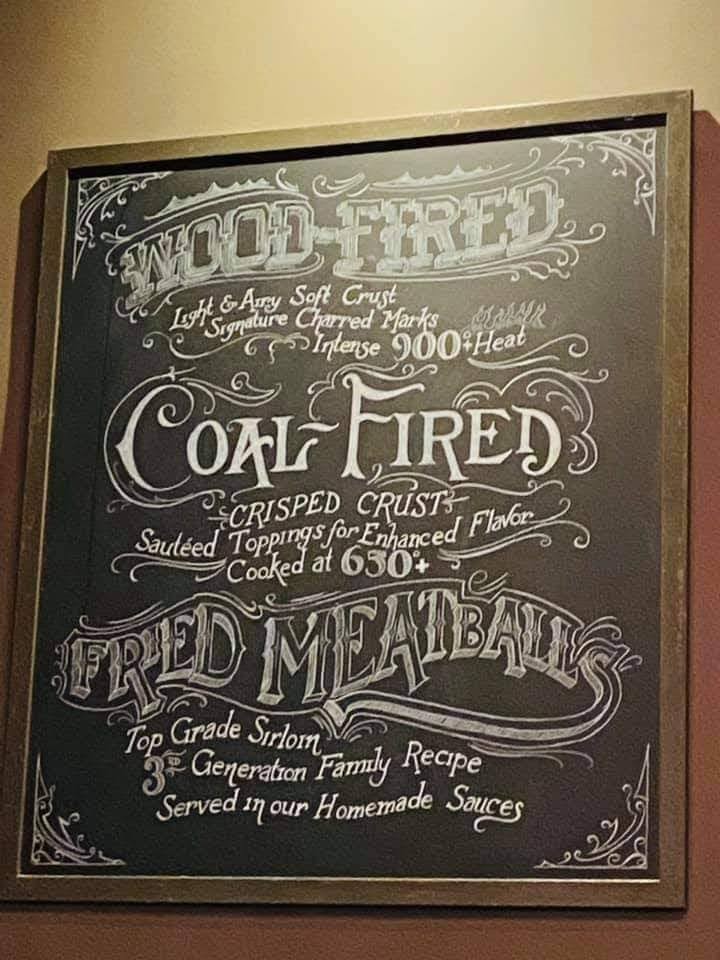 WOOD-FIRED
Light & Airy Soft Crust
Signature Charred Marks
Intense 900°+ Heat
COAL-FIRED
CRISPED CRUST
Sautéed Toppings for Enhanced Flavor
Cooked at 630°+
FRIED MEATBALLS
Top Grade Sirloin
3RD Generation Family Recipe
Served in our Homemade Sauces